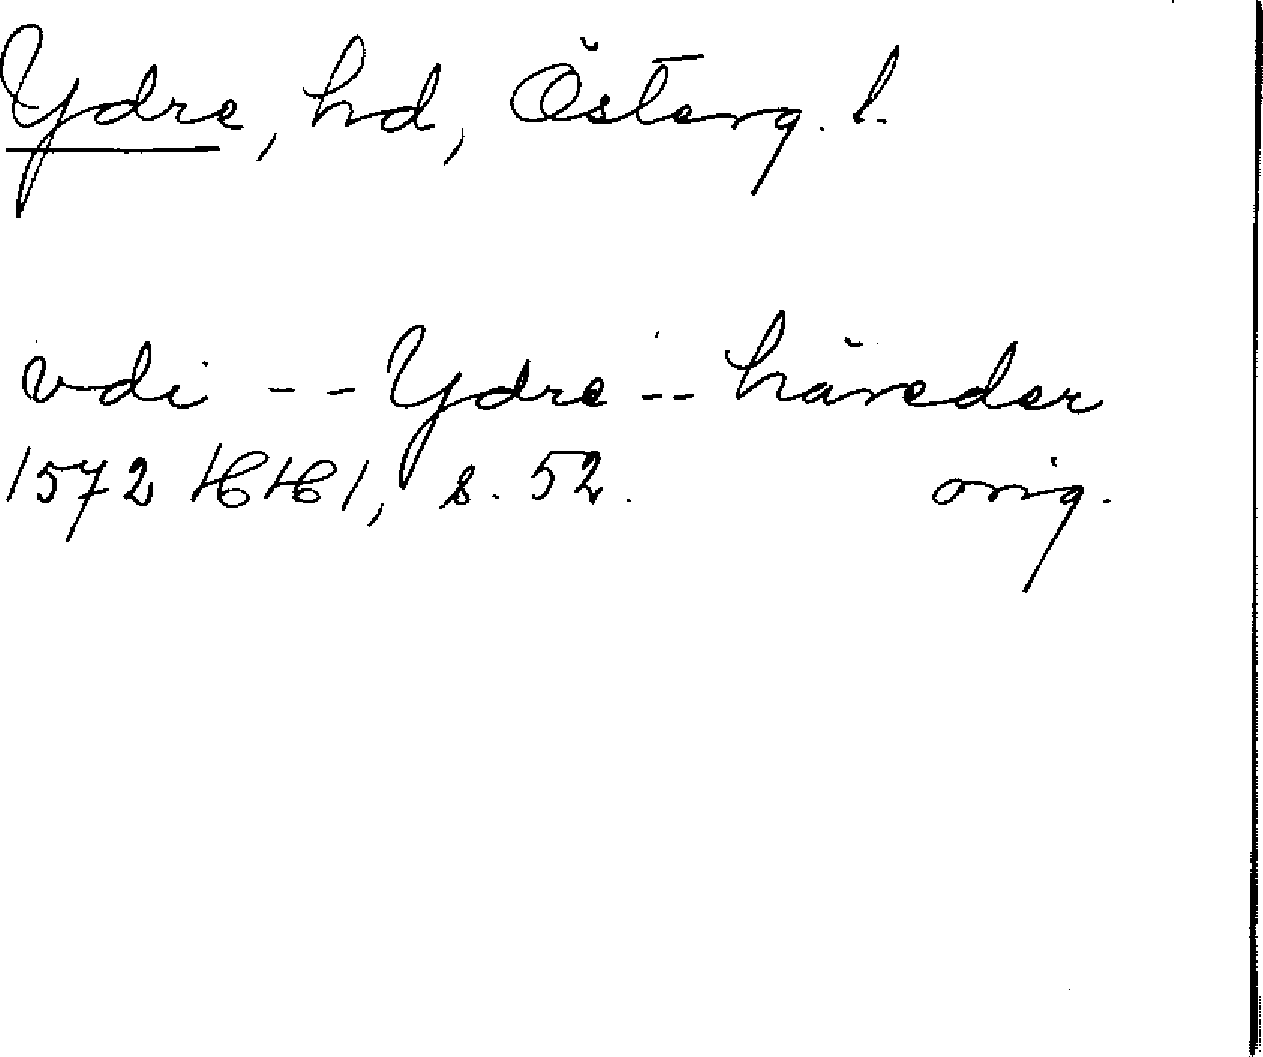 Ydre, hd, Österg. l.
vdi -- Ydre -- häreder
1572 HH 1, s. 52. orig.